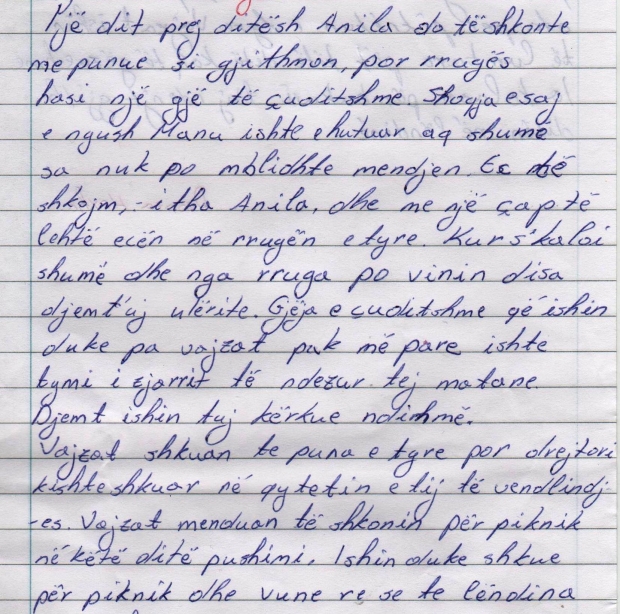 Një dit prej ditësh Anila do të shkonte
me punue si gjithmon, por rrugës
hasi një gjë të çuditshme Shoqja e saj
e ngush Manu ishte e hutuar aq shumë
sa nuk po mblidhte mendjen. Ec të
shkojm, - i tha Anila, dhe me një çap të
lehtë ecën në rrugën e tyre. Kur s'kaloi
shumë dhe nga rruga po vinin disa
djem t'uj ulërite. Gjëja e çuditshme që ishin
duke pa vajzat pak më pare ishte
tymi i zjarrit të ndezur tej matane.
Djemt ishin tuj kërkue ndihmë.
Vajzat shkuan te puna e tyre por drejtori
kishte shkuar në qytetin e tij të vendlindj
-es. Vajzat menduan të shkonin për piknik
në këtë ditë pushimi. Ishin duke shkue
për piknik dhe vune re se te lëndina